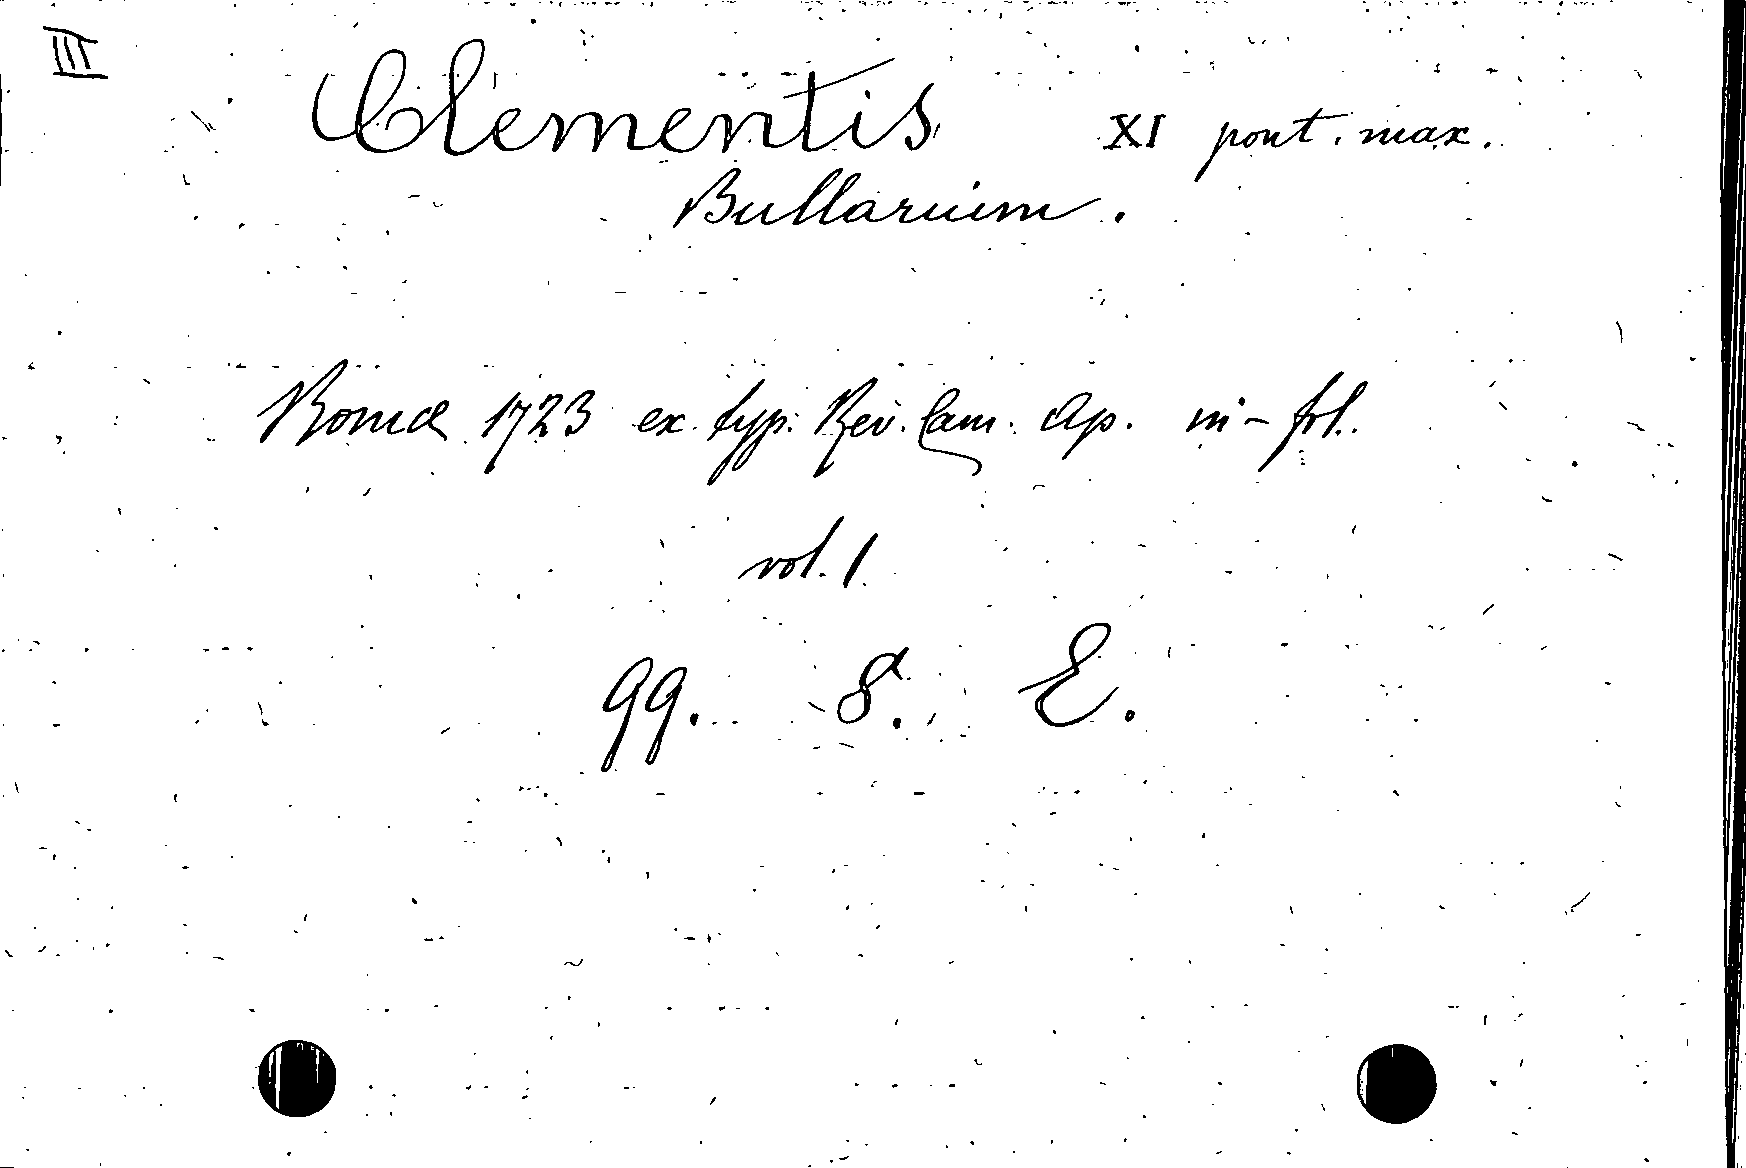 III
Clementis XI pont. max.
Bullarium.
Romæ 1723 ex typ. Rev. Cam. Ap. in-fol.
vol. 1
99. 8. E.